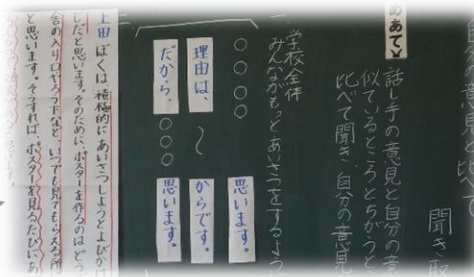 意見と比べて
聞き取
めあて
話し手の意見と自分の意
似ているところとちがうと
比べて聞き、自分の意見
学校全体
みんながもっとあいさつをするよう
○○○○ 思います。
理由は、～からです。
だから、○○○思います。
上田 ぼくは、積極的にあいさつしようとよびかけ
しだと思います。そのために、ポスターを作るのはどう
舎の入り口やろう下など、いつでも見てもらえる所
と思います。そうすれば、ポスターを見るたびにあ